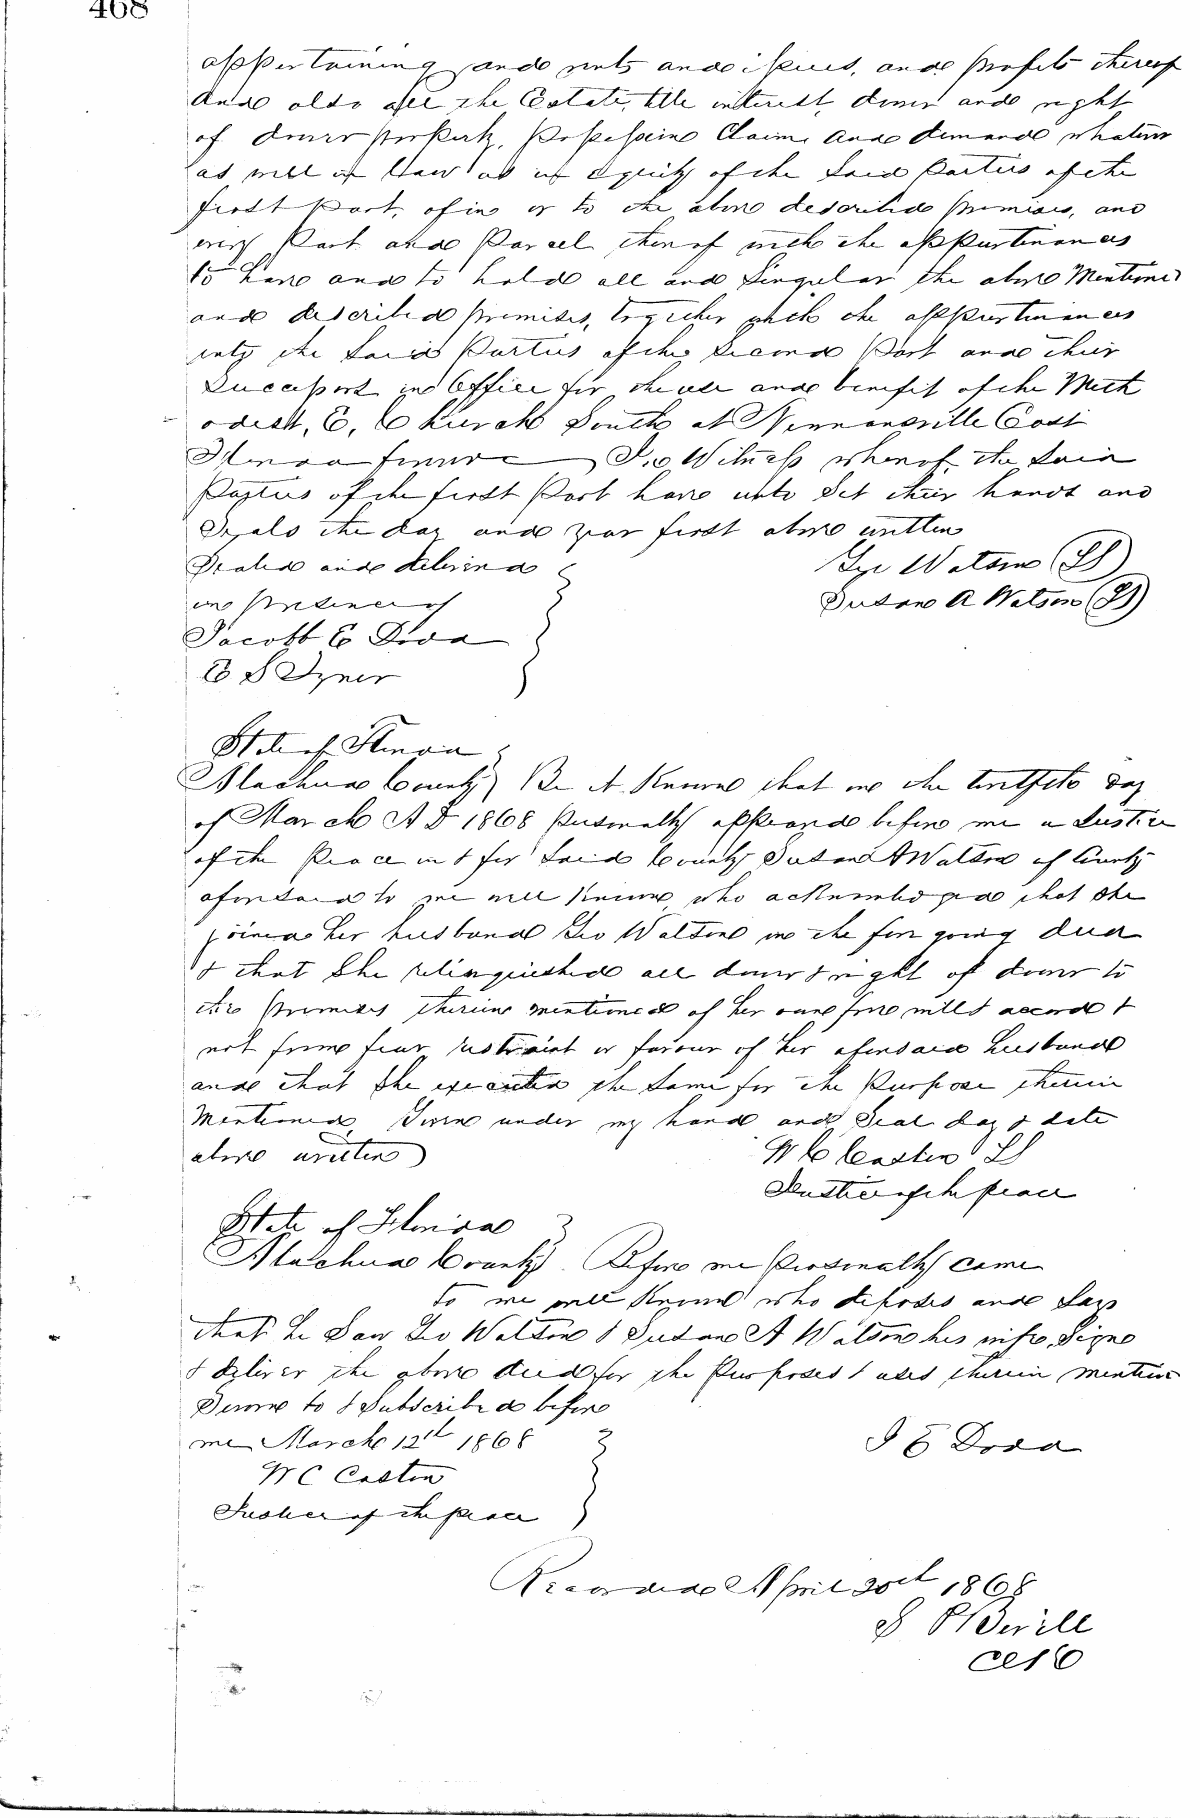 468
appertaining and rents and issues, and profits thereof
And also all the Estate, title interest, dower and right
of dower property, Possession Claim And demand whatever
as well in Law as in equity of the Said Parties of the
first Part, of in or to the above described premises, and
every Part and Parcel thereof with the appurtenances
to have and to hold all and Singular the above Mentioned
and described premises, together with the appurtenances
unto the Said Parties of the Second Part and their
Successors in Office for the use and benefit of the Meth
odist, E, Church South at Newnansville East
Florida forever In Witness whereof, the Said
Parties of the first Part have unto Set their hands and
Seals the day and year first above written
Sealed and delivered
Geo Watson (LS)
in presence of
Susan A Watson (LS)
Jacob E Doda
S
State of Florida
Alachua County } Be it Known that on the twelfth day
of March A D 1868 personally appeared before me a Justice
of the Peace in & for Said County Susan A Watson of County
aforesaid to me well Known, who acknowledged that She
joined her husband Geo Watson in the foregoing deed
& that She relinquished all dower & right of dower to
the premises therein mentioned of her own free will & accord &
not from fear restraint or favour of her aforesaid husband
and that She executed the Same for the Purpose therein
Mentioned, Given under my hand and Seal day & date
above written
W C Caston LS
Justice of the peace
State of Florida
Alachua County } Before me Personally came
to me well Known who deposes and Says
that he Saw Geo Watson & Susan A Watson his wife, Sign
& deliver the above deed for the Purposes & uses therein mention
Sworn to & Subscribed before
me March 12th 1868
J E Doda
W C Caston
Justice of the peace
Recorded April 20th 1868
S
Clk